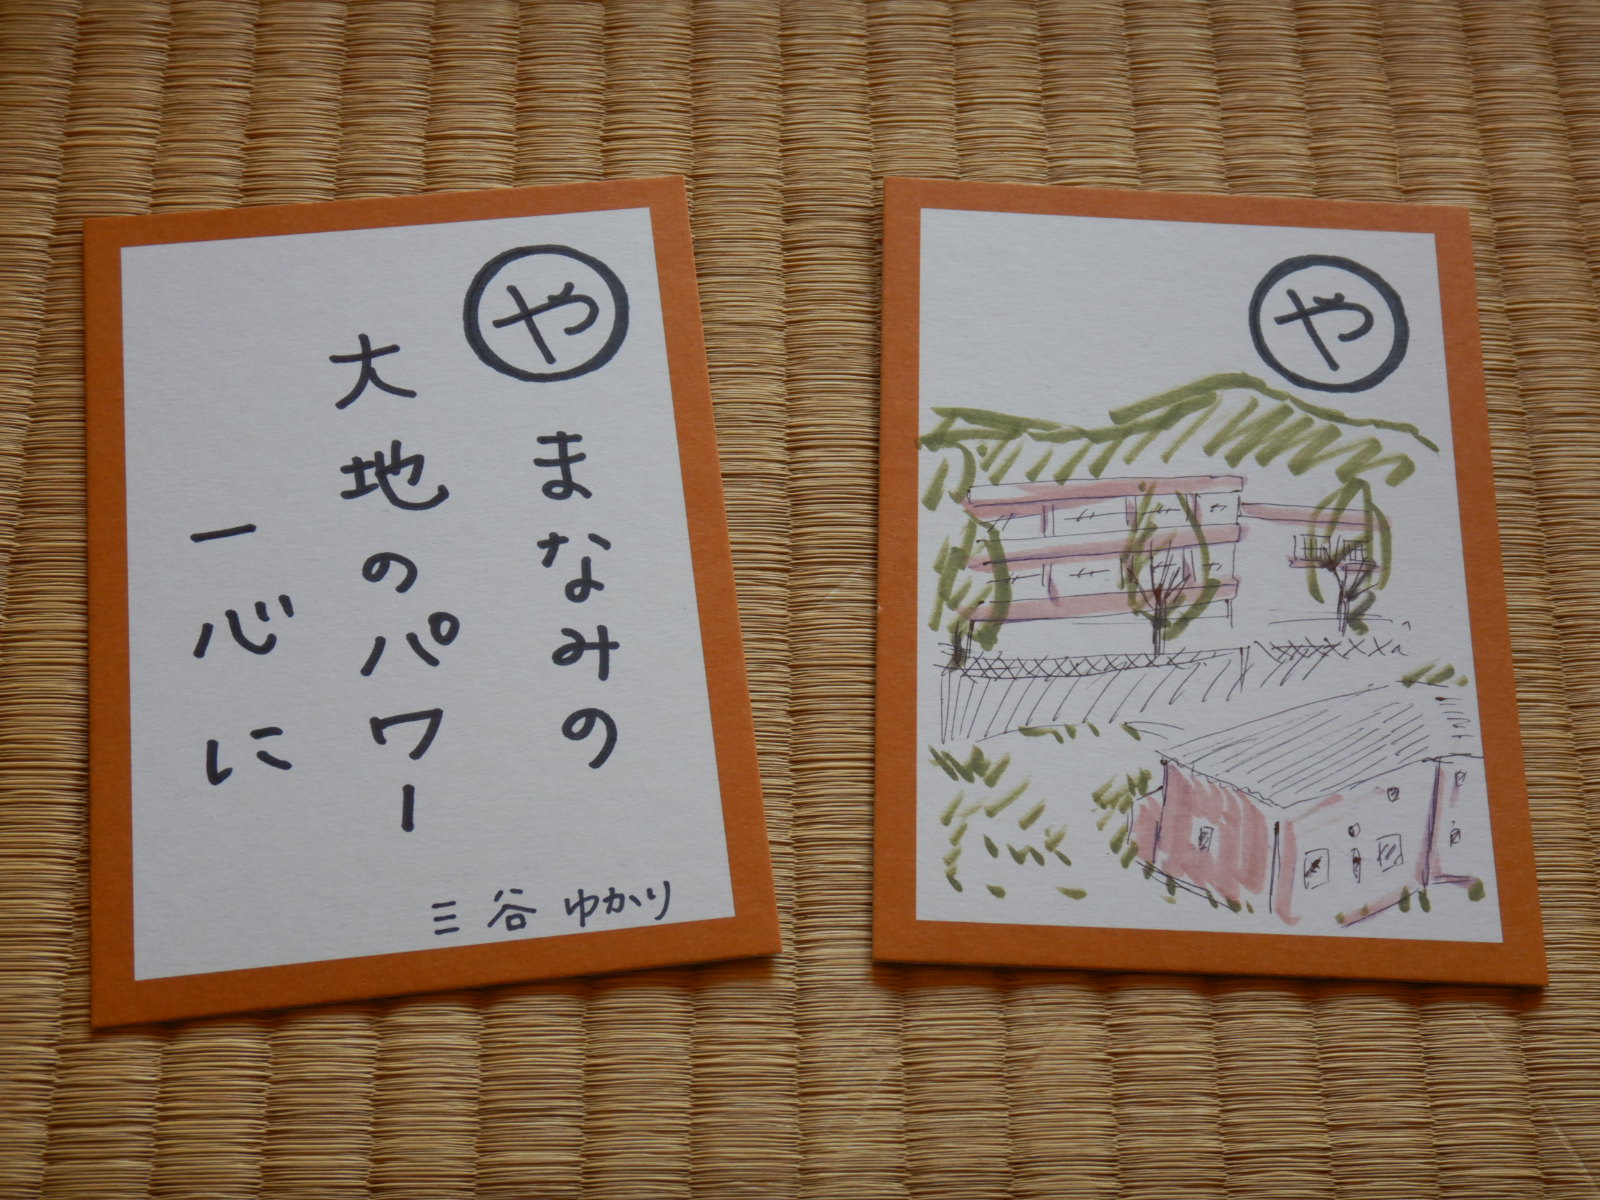 や
まなみの
大地のパワー
一心に
三谷 ゆかり
や